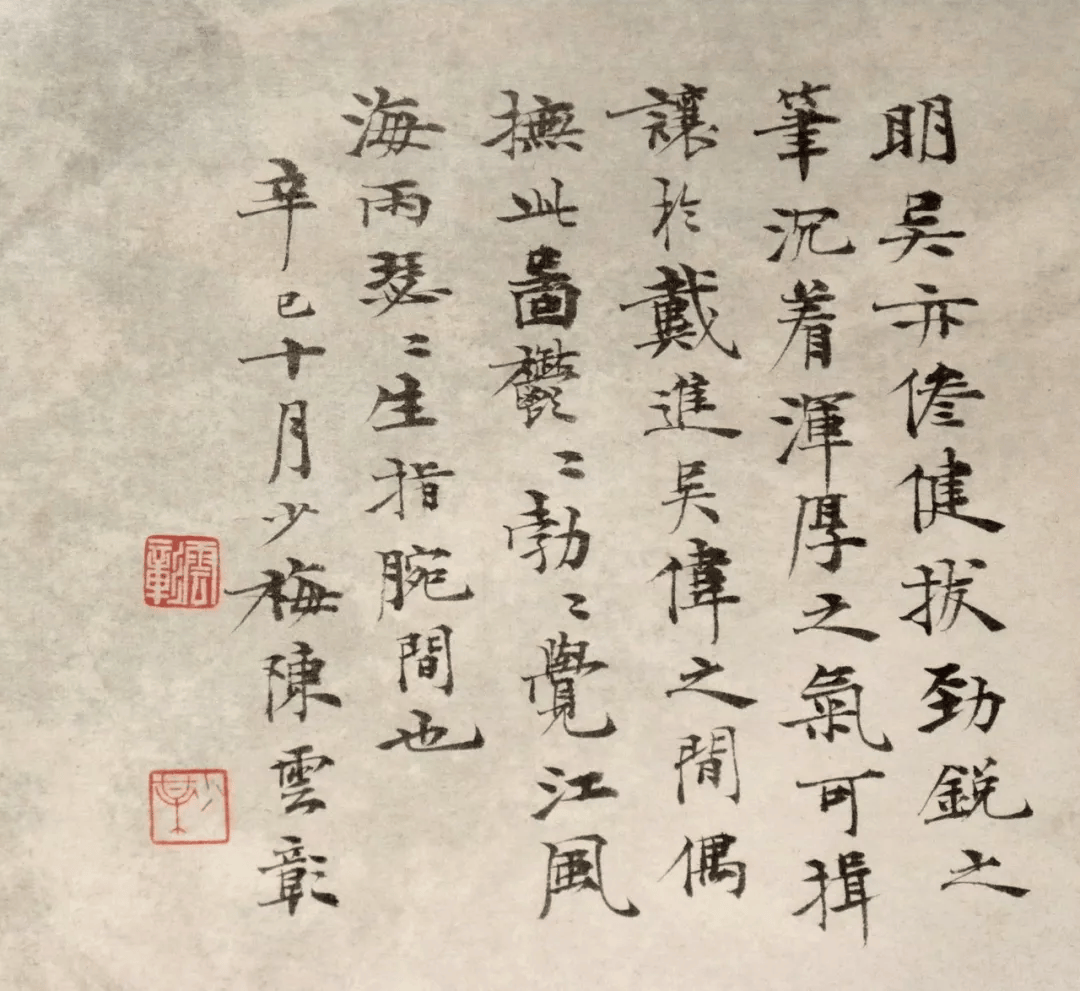 明吳亦僊健拔勁銳之
筆沉着渾厚之氣可揖
讓於戴進吳偉之間偶
撫此圖鬱〻勃〻覺江風
海雨瑟〻生指腕間也
辛巳十月少梅陳雲彰
雲彰